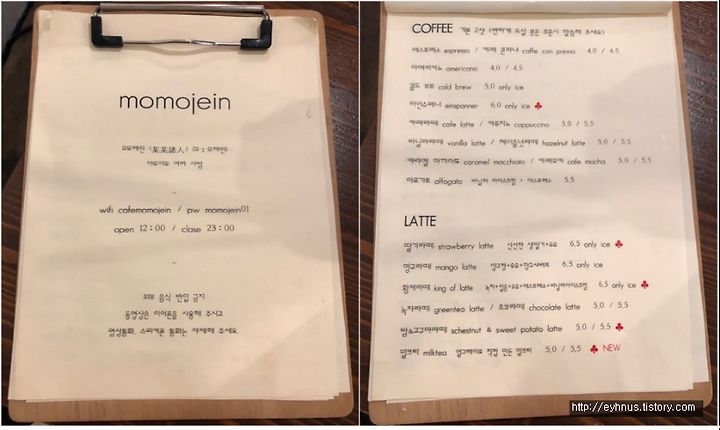 momojein
모모제인 《某某諸人》 [모:모제인]
아무아무 여러 사람
-
wifi cafemomojein / pw momojein01
open 12:00 / close 23:00
-
외부 음식 반입 금지
동영상은 이어폰을 사용해 주시고
영상통화, 스피커폰 통화는 자제해 주세요.
COFFEE 기본 2샷 (연하게 드실 분은 주문시 말씀해 주세요)
에스프레소 espresso / 카페 콘파냐 caffe con panna 4.0 / 4.5
아메리카노 americano 4.0 / 4.5
콜드 브루 cold brew 5.0 only ice
아인슈페너 einspanner 6.0 only ice ♣
카페라떼 cafe latte / 카푸치노 cappuccino 5.0 / 5.5
바닐라라떼 vanilla latte / 헤이즐넛라떼 hazelnut latte 5.0 / 5.5
카라멜 마끼아또 caramel macchiato / 카페모카 cafe mocha 5.0 / 5.5
아포가토 affogato 바닐라 아이스크림 + 에스프레소 5.5
LATTE
딸기라떼 strawberry latte 신선한 생딸기+우유 6.5 only ice ♣
망고라떼 mango latte 망고청+우유+망고샤베트 6.5 only ice
황제라떼 king of latte 녹차+얼음+우유+에스프레소+바닐라아이스크림 6.5 only ice ♣
녹차라떼 greentea latte / 초코라떼 chocolate latte 5.0 / 5.5
밤&고구마라떼 schestnut & sweet potato latte 5.0 / 5.5 ♣
밀크티 milktea 얼그레이로 직접 만든 밀크티 5.0 / 5.5 ♣ NEW
http://eyhnus.tistory.com